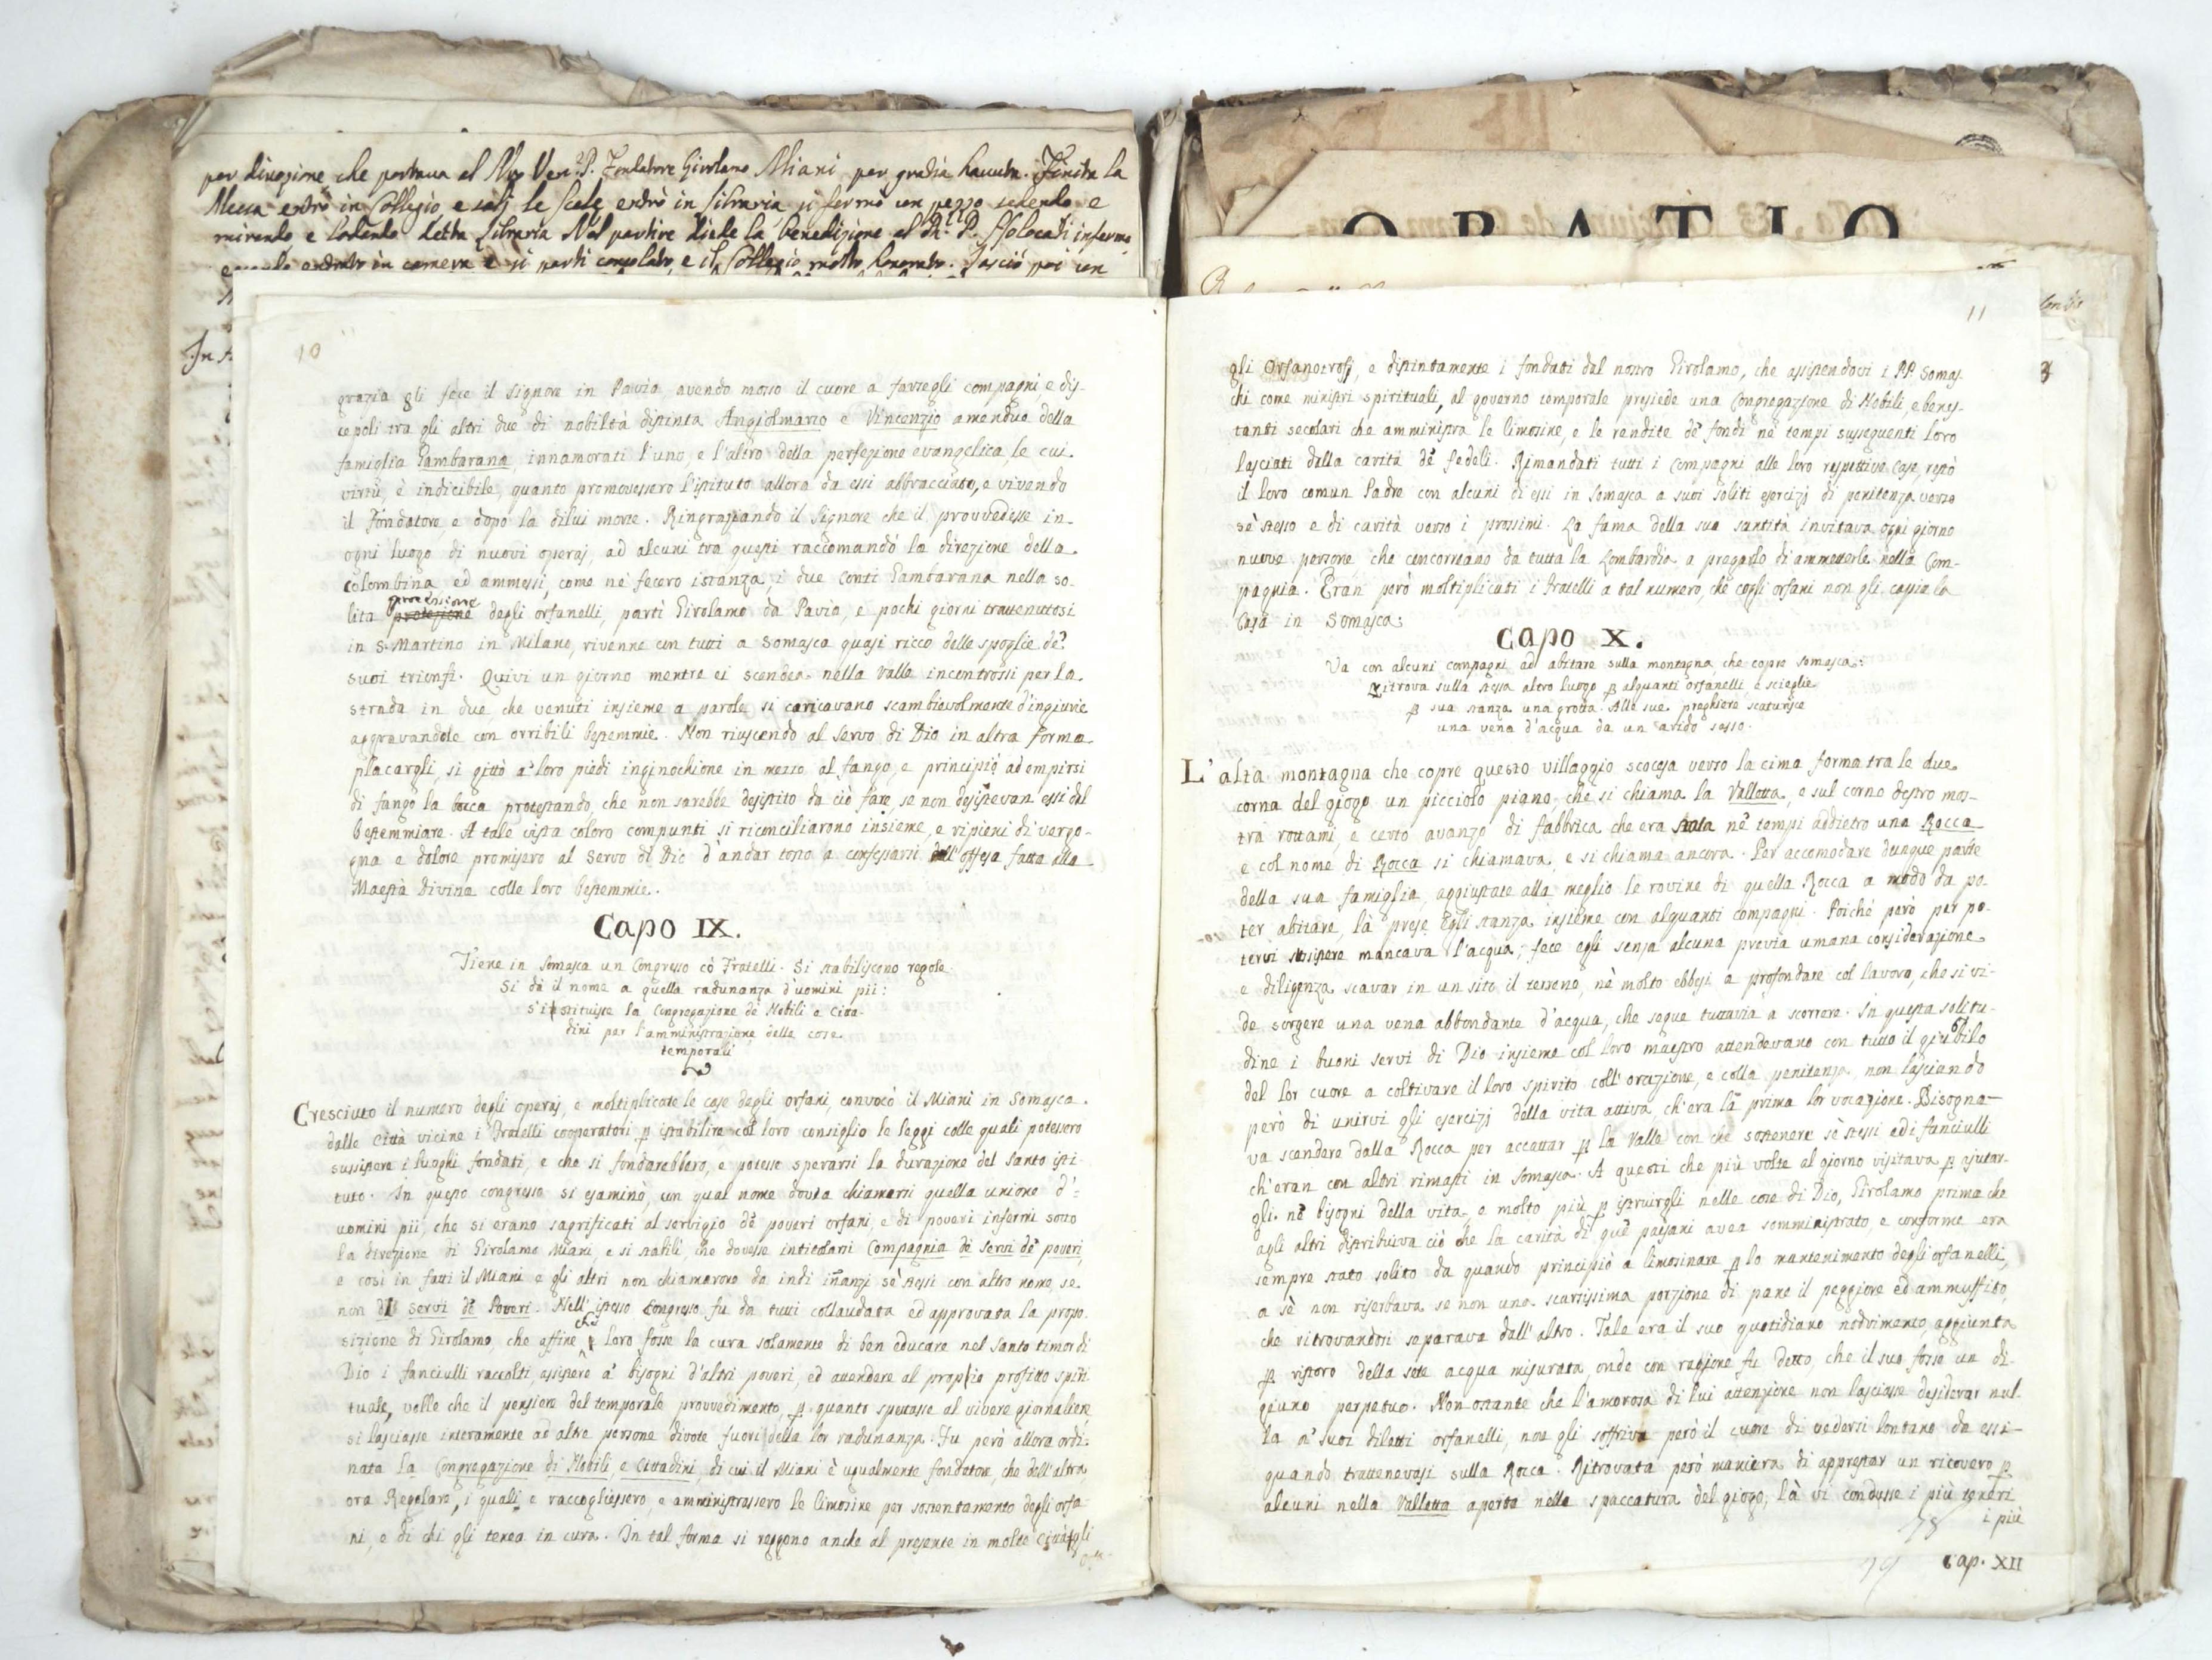 per divozione che portava al Nro Ven. P. Fondatore Girolamo Miani per grazia havuta. Finita la
Messa entrò in Collegio e salì le scale entrò in libraria si fermò un pezzo sedendo e
mirando e lodando detta libraria Nel partire diede la benedizione al infermo
entrato in camera e si partì consolato, e il Collegio molto honorato. Lasciò poi un
ORATIO
10
grazia gli fece il Signore in Pavia avendo mosso il cuore a farsegli compagni e dis-
cepoli tra gli altri due di nobiltà distinta Angiolmarco e Vincenzio amendue della
famiglia Gambarana, innamorati l'uno, e l'altro della perfezione evangelica, le cui
virtù, è indicibile, quanto promovessero l'istituto allora da essi abbracciato, e vivendo
il Fondatore, e dopo la dilui morte. Ringraziando il Signore che il provvedesse in
ogni luogo di nuovi operaj, ad alcuni tra questi raccomandò la direzione della
Colombina, ed ammessi, come ne fecero istanza, i due Conti Gambarana nella so-
processione
lita protezione degli orfanelli, partì Girolamo da Pavia, e pochi giorni trattenutosi
in S. Martino in Milano, rivenne con tutti a Somasca quasi ricco delle spoglie de'
suoi trionfi. Quivi un giorno mentre ei scendea nella Valle incontrossi per la
strada in due, che venuti insieme a parole si caricavano scambievolmente d'ingiurie
aggravandole con orribili bestemmie. Non riuscendo al Servo di Dio in altra forma
placargli, si gittò a' loro piedi inginochione in mezzo al fango, e principiò ad empirsi
di fango la bocca protestando, che non sarebbe desistito da ciò fare, se non desistevan essi dal
bestemmiare. A tale vista coloro compunti si riconciliarono insieme, e ripieni di vergo-
gna e dolore promisero al Servo di Dio d'andar tosto a confessarsi dell'offesa fatta alla
Maestà Divina colle loro bestemmie.
Capo IX.
Tiene in Somasca un Congresso cò Fratelli. Si stabiliscono regole.
Si dà il nome a quella radunanza d'uomini pii:
S'instituisce la Congregazione de Nobili e Citta-
dini per l'amministrazione delle cose
temporali
Cresciuto il numero degli operaj, e moltiplicate le case degli orfani, convocò il Miani in Somasca
dalle Città vicine i Fratelli cooperatori p istabilire col loro consiglio le leggi colle quali potessero
sussistere i luoghi fondati, e che si fondarebbero, e potesse sperarsi la durazione del Santo isti-
tuto. In questo congresso si esaminò, un qual nome dovea chiamarsi quella unione d'
uomini pii, che si erano sagrificati al servigio de' poveri orfani, e di poveri infermi sotto
la direzione di Girolamo Miani, e si stabilì, che dovesse intitolarsi Compagnia de Servi de' poveri,
e così in fatti il Miani e gli altri non chiamarono da indi innanzi sè stessi con altro nome, se
non di servi de Poveri. Nell'istesso Congresso fu da tutti collaudata ed approvata la propo-
che
sizione di Girolamo, che affine loro fosse la cura solamente di ben educare nel Santo timor di
Dio i fanciulli raccolti, assistere a' bisogni d'altri poveri, ed attendere al proprio profitto spiri-
tuale, volle che il pensiere del temporale provvedimento, p quanto spettasse al vivere giornaliere
si lasciasse interamente ad altre persone divote fuori della lor radunanza. Fu però allora ordi-
nata la Congregazione di Nobili, e Cittadini, di cui il Miani è ugualmente fondatore, che dell'altra
ora Regolare, i quali e raccogliessero, e amministrassero le limosine per sostentamento degli orfa
ni, e di chi gli tenea in cura. In tal forma si reggono anche al presente in molte Città gli
11
gli Orfanotrofj, e distintamente i fondati dal nostro Girolamo, che assistendovi i PP. Somas-
chi come ministri spirituali, al governo temporale presiede una Congregazione di Nobili, e bene-
stanti secolari che amministra le limosine, e le rendite de' fondi ne' tempi susseguenti loro
lasciati dalla carità de' fedeli. Rimandati tutti i Compagni alle loro rispettive Case, restò
il loro comun Padre con alcuni di essi in Somasca a suoi soliti esercizj di penitenza verso
sè stesso e di carità verso i prossimi. La fama della sua santità invitava ogni giorno
nuove persone che concorreano da tutta la Lombardia a pregarlo di ammetterle nella Com-
pagnia. Eran però moltiplicati i Fratelli a tal numero, che cogli orfani non gli capia la
Casa in Somasca.
Capo X.
Va con alcuni compagni ad abitare sulla montagna, che copre Somasca:
Ritrova sulla stessa altro luogo p alquanti orfanelli, e scieglie
p sua stanza una grotta. Alle sue preghiere scaturisce
una vena d'acqua da un arido sasso.
L'alta montagna che copre questo villaggio scocesa verso la cima forma tra le due
corna del giogo un picciolo piano, che si chiama la Valletta, e sul corno destro mos-
tra rottami, e certo avanzo di fabbrica che era stata ne' tempi addietro una Rocca
e col nome di Rocca si chiamava, e si chiama ancora. Per accomodare dunque parte
della sua famiglia, aggiustate alla meglio le rovine di quella Rocca a modo da po-
ter abitare, là prese Egli stanza insieme con alquanti compagni. Poichè però per po-
tervi sussistere mancava l'acqua, fece egli senza alcuna previa umana considerazione
e diligenza scavar in un sito il terreno, nè molto ebbesi a profondare col lavoro, che si vi-
de sorgere una vena abbondante d'acqua, che segue tuttavia a scorrere. In questa solitu-
dine i buoni servi di Dio insieme col loro maestro attendevano con tutto il giubilo
del lor cuore a coltivare il loro spirito coll'orazione, e colla penitenza, non lasciando
però di unirvi gli esercizj della vita attiva, ch'era la prima lor vocazione. Bisogna-
va scendere dalla Rocca per accattar p la Valle con che sostenere sè stessi ed i fanciulli
ch'eran con altri rimasti in Somasca. A questi che più volte al giorno visitava p ajutar-
gli ne' bisogni della vita, e molto più p istruirgli nelle cose di Dio, Girolamo prima che
agli altri distribuiva ciò che la carità di que' paesani avea somministrato, e conforme era
sempre stato solito da quando principiò a limosinare p lo mantenimento degli orfanelli,
a sè non riserbava se non una scarsissima porzione di pane il peggiore ed ammuffito,
che ritrovandosi separava dall'altro. Tale era il suo quotidiano nodrimento, aggiunta
p ristoro della sete acqua misurata, onde con ragione fu detto, che il suo fosse un di-
giuno perpetuo. Non ostante che l'amorosa di lui attenzione non lasciasse desiderar nul-
la a' suoi diletti orfanelli, non gli soffriva però il cuore di vedersi lontano da essi
quando trattenevasi sulla Rocca. Ritrovata però maniera di apprestar un ricovero p
alcuni nella Valletta aperta nella spaccatura del giogo, là vi condusse i più teneri
i più
Cap. XII